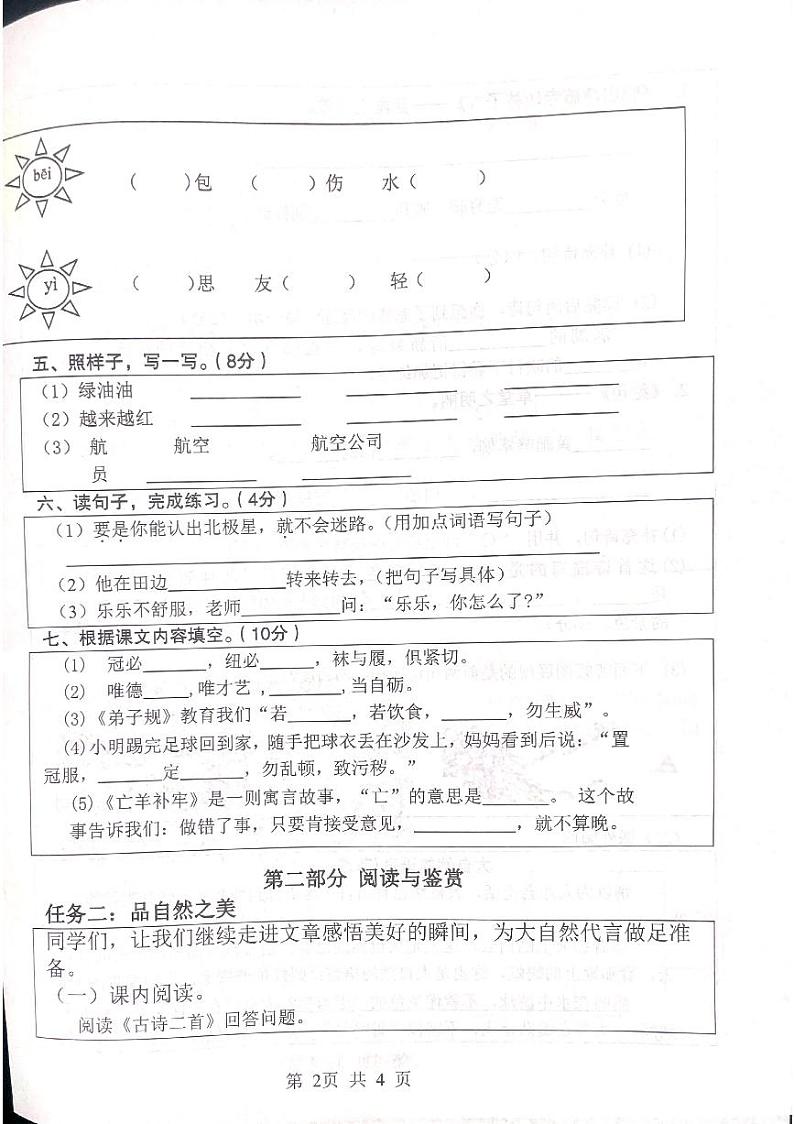 bēi
(    )包  (    )伤  水(    )
yì
(    )思  友(    )  轻(    )
五、照样子，写一写。(8分)
(1)绿油油 __________ __________ __________
(2)越来越红 __________ __________ __________
(3) 航 航空 航空公司
员 __________ __________
六、读句子，完成练习。(4分)
(1)要是你能认出北极星，就不会迷路。(用加点词语写句子)
____________________
(2)他在田边__________转来转去，(把句子写具体)
(3)乐乐不舒服，老师__________问：“乐乐，你怎么了?”
七、根据课文内容填空。(10分)
(1) 冠必______，纽必______，袜与履，俱紧切。
(2) 唯德_____,唯才艺 ,_______,当自砺。
(3)《弟子规》教育我们“若______，若饮食，______，勿生威”。
(4)小明踢完足球回到家，随手把球衣丢在沙发上，妈妈看到后说：“置
冠服，______定______，勿乱顿，致污秽。”
(5)《亡羊补牢》是一则寓言故事，“亡”的意思是______。 这个故
事告诉我们：做错了事，只要肯接受意见，__________，就不算晚。
第二部分 阅读与鉴赏
任务二：品自然之美
同学们，让我们继续走进文章感悟美好的瞬间，为大自然代言做足准
备。
（一）课内阅读。
阅读《古诗二首》回答问题。
第 2页 共 4 页